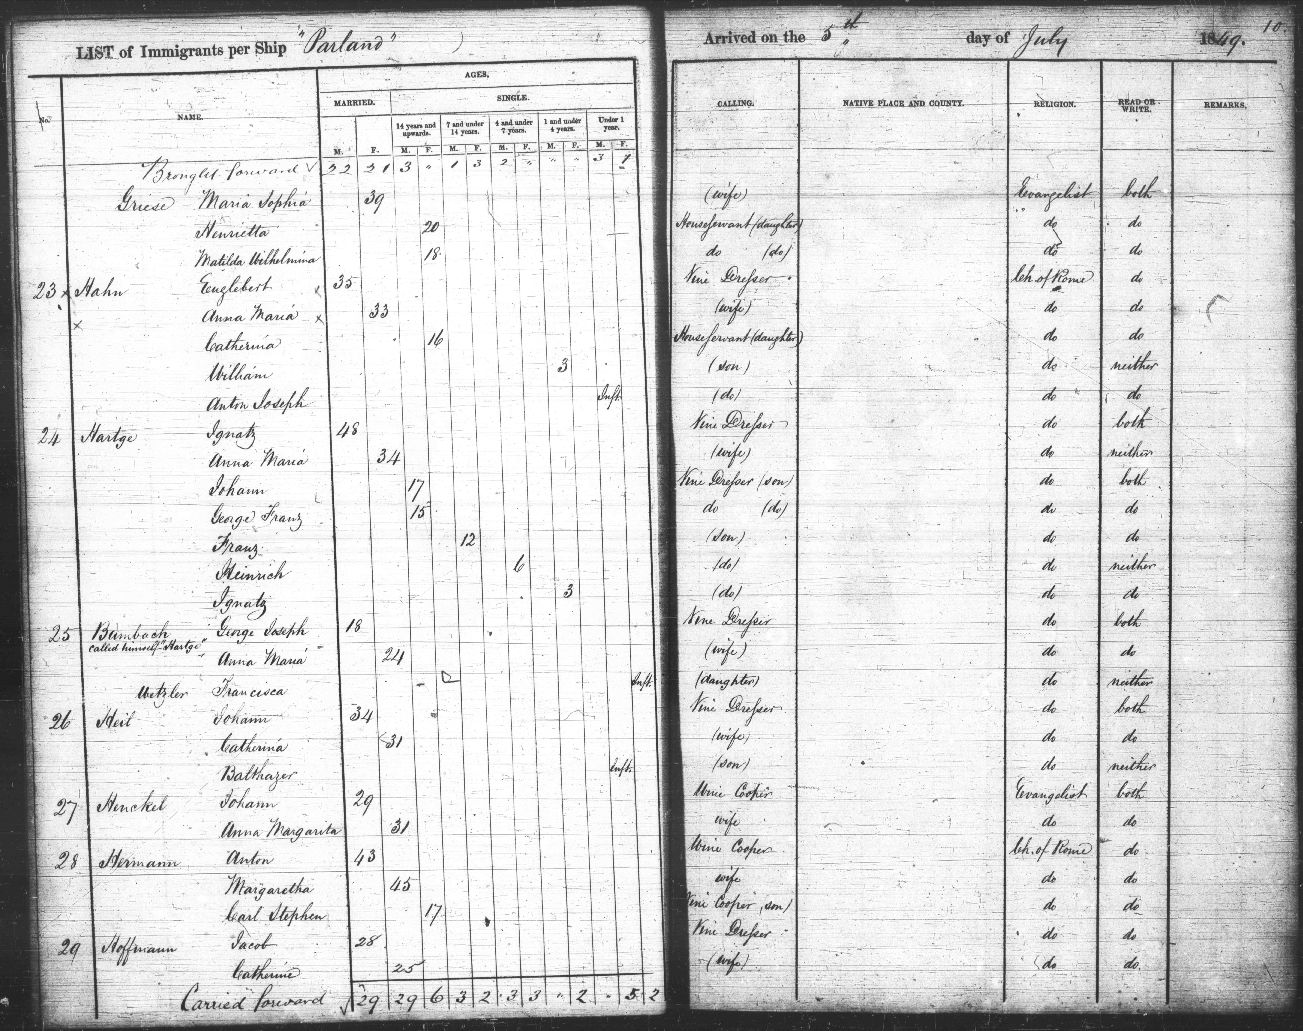 LIST of Immigrants per Ship "Parland"
Arrived on the 5th day of July 1849.
10
AGES,
MARRIED. SINGLE.
14 years and upwards. 7 and under 14 years. 4 and under 7 years. 1 and under 4 years. Under 1 year.
No. NAME. M. F. M. F. M. F. M. F. M. F. M. F. CALLING. NATIVE PLACE AND COUNTY. RELIGION. READ OR WRITE. REMARKS.
Brought forward 22 21 3 " 1 3 2 " " " 3 1
Griese Maria Sophia 39 (wife) Evangelist both
Henrietta 20 Houseservant (daughter) do do
Matilda Wilhelmina 18 do (do) do do
23 x Hahn Englebert 35 Vine Dresser Ch. of Rome do
x Anna Maria x 33 (wife) do do
Catherina 16 Houseservant (daughter) do do
William 3 (son) do neither
Anton Joseph Inft. (do) do do
24 Hartge Ignatz 48 Vine Dresser do both
Anna Maria 34 (wife) do neither
Johann 17 Vine Dresser (son) do both
George Franz 15 do (do) do do
Franz 12 (son) do do
Heinrich 6 (do) do neither
Ignatz 3 (do) do do
25 Bambach George Joseph 18 Vine Dresser do both
called himself "Hartge"
Anna Maria 24 (wife) do do
Wetzler Francisca Inft. (daughter) do neither
26 Heil Johann 34 Vine Dresser do both
Catherina 31 (wife) do do
Balthazer Inft. (son) do neither
27 Henckel Johann 29 Wine Cooper Evangelist both
Anna Margarita 31 wife do do
28 Hermann Anton 43 Wine Cooper Ch. of Rome do
Margaretha 45 wife do do
Carl Stephen 17 Wine Cooper (son) do do
29 Hoffmann Jacob 28 Vine Dresser do do
Catherine 25 (wife) do do
Carried forward 29 29 6 3 2 3 3 " 2 " 5 2